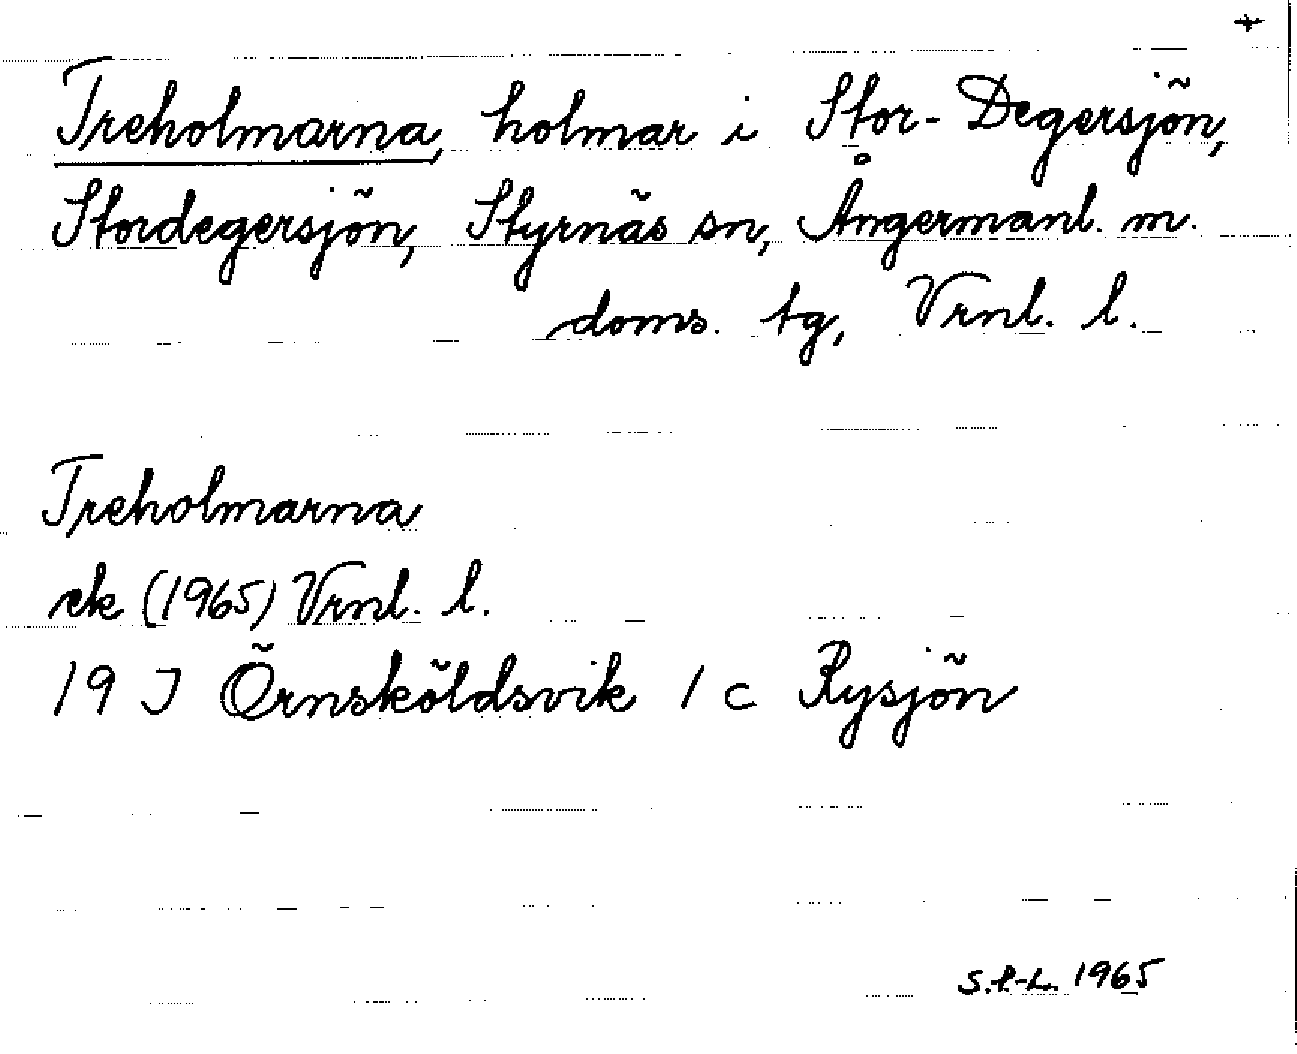 +
Treholmarna, holmar i Stor-Degersjön,
Stordegersjön, Styrnäs sn, Ångermanl. m.
doms. tg, Vrnl. l.
Treholmarna
ek (1965) Vrnl. l.
19 J Örnsköldsvik 1 c Rysjön
S.P-L. 1965